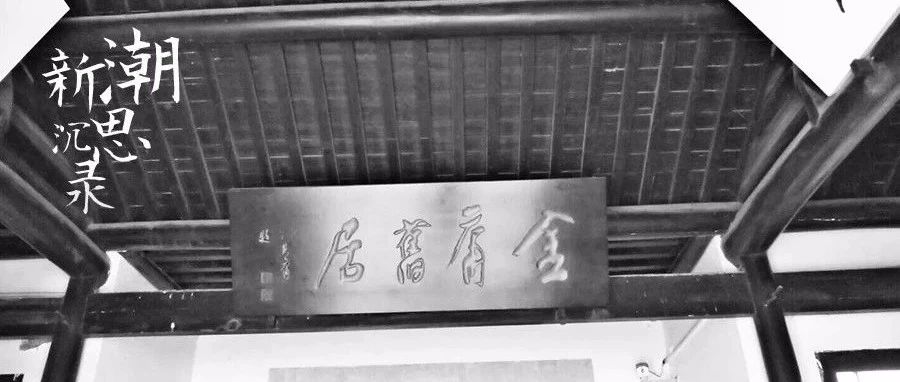 新潮
沉思录
金庸舊居